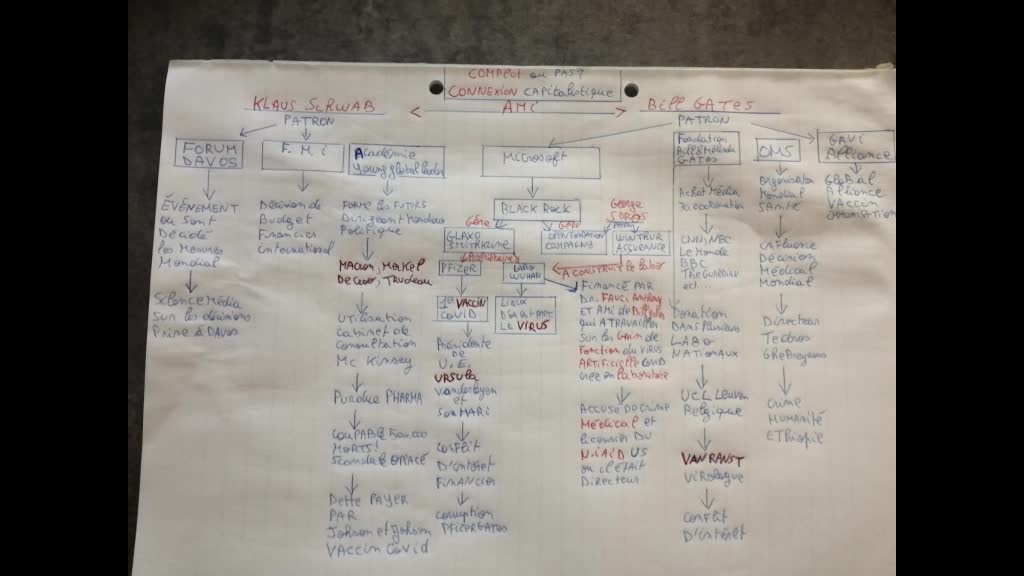 COMPLOT ou PAS?
CONNEXION CAPITALISTIQUE
KLAUS SCHWAB
< AMI >
BILL GATES
PATRON
PATRON
FORUM
DAVOS
F.M.i
Académie
Young global leader
Microsoft
Fondation
Bill & Melinda
GATES
OMS
GAVI
Alliance
ÉVÉNEMENT
ou sont
Décidé
les Mesures
Mondial
Silence Média
sur les décisions
Prise à DAVOS
Décision de
Budget
Financier
international
FORME les FUTURS
Dirigeant Mondiaux
Politique
MACRON, Merkel
De Croo, TRUDEAU
Utilisation
cabinet de
consultation
Mc Kinsey
Purdue PHARMA
COUPABLE 500.000
MORTS!
Scandale OPIACÉ
Dette PAYER
PAR
Johson et Johson
VACCIN Covid
BLACK ROCK
Gère
GLAXO
SMITHKLINE
Propriétaire
PFIZER
1er VACCIN
COVID
Présidente
DE
U.E.
URSULA
Vanderleyen
et
son MARI
Conflit
D'intérêt
FINANCIER
corruption
PFIZER GATES
Gère
OPEN FONDATION
COMPAGNY
George
SOROS
WINTTUR
ASSURANCE
LABO
WUHAN
A CONSTRUIT le labo
Lieux
D'où est PARTI
Le VIRUS
Financé PAR
Dr. FAUCI Anthony
ET AMI de Bill Gates
qui A TRAVAILLER
sur les Gain de
Fonction du VIRUS
ARTIFICIELLE COVID
crée en laboratoire
ACCUSÉ DE CRIME
Médical et
licencier DU
N.i.A.i.D US
ou il était
DIRECTEUR
Achat Média
CNN, NBC
Le Monde
BBC
THE GUARDIAN
ect...
Donation
DANS Plusieurs
LABO
NATIONAUX
UCL Leuven
Belgique
VAN RANST
Virologue
Conflit
D'intérêt
Organisation
Mondial
SANTÉ
influence
Décision
Médical
Mondial
Directeur
Tedros
GHebreyesus
Crime
HUMANITÉ
ETHiopie
Global
Alliance
VACCIN
immunisation